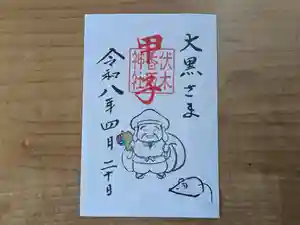 大黒さま
甲子
伏木
香取
神社
令和八年四月二十日